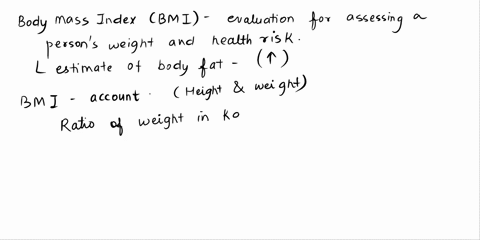 Body mass Index (BMI) - evaluation for assessing a
person's weight and health risk.
L estimate of body fat - (↑)
BMI - account. (Height & weight)
Ratio of weight in Ko